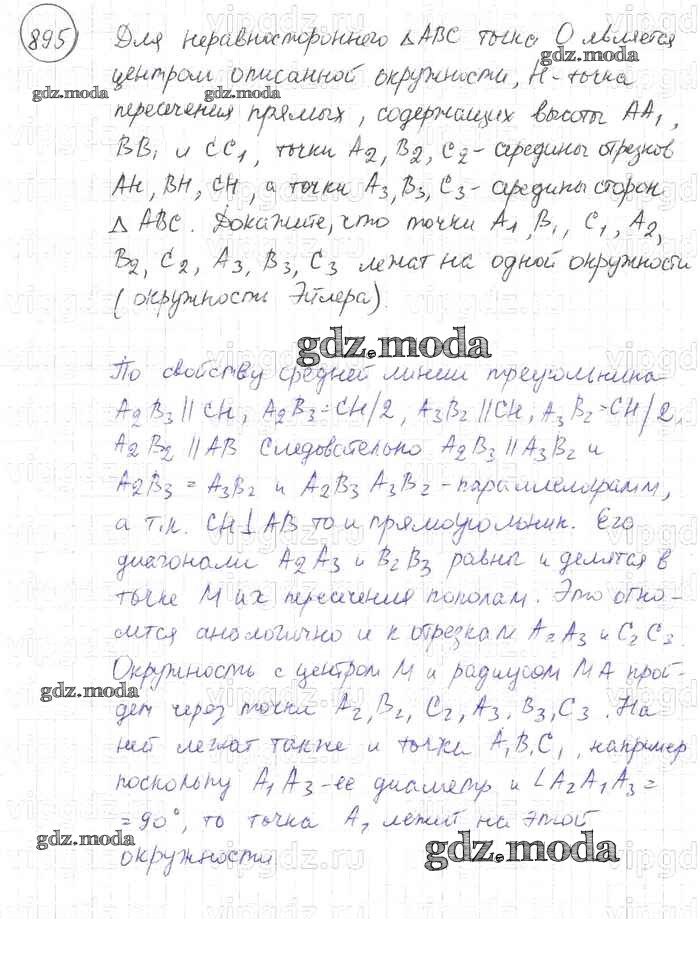 895
Для неравностороннего △ABC точка O является
центром описанной окружности, H-точка
пересечения прямых, содержащих высоты AA₁,
BB₁ и CC₁, точки A₂, B₂, C₂ - середины отрезков
AH, BH, CH, а точки A₃, B₃, C₃ - середины сторон
△ ABC. Докажите, что точки A₁, B₁, C₁, A₂,
B₂, C₂, A₃, B₃, C₃ лежат на одной окружности
(окружности Эйлера).
gdz.moda
По свойству средней линии треугольника
A₂B₃ || CH, A₂B₃=CH/2, A₃B₂ || CH, A₃B₂=CH/2,
A₂B₂ || AB Следовательно A₂B₃ || A₃B₂ и
A₂B₃ = A₃B₂ и A₂B₃A₃B₂-параллелограмм,
а т.к. CH⊥AB то и прямоугольник. Его
диагонали A₂A₃ и B₂B₃ равны и делятся в
точке M их пересечения пополам. Это отно-
сится аналогично и к отрезкам A₂A₃ и C₂C₃.
Окружность с центром M и радиусом MA прой-
дет через точки A₂, B₂, C₂, A₃, B₃, C₃. На
ней лежат также и точки A₁B₁C₁, например
поскольку A₁A₃-ее диаметр и ∠A₂A₁A₃=
=90°, то точка A₁ лежит на этой
окружности
gdz.moda